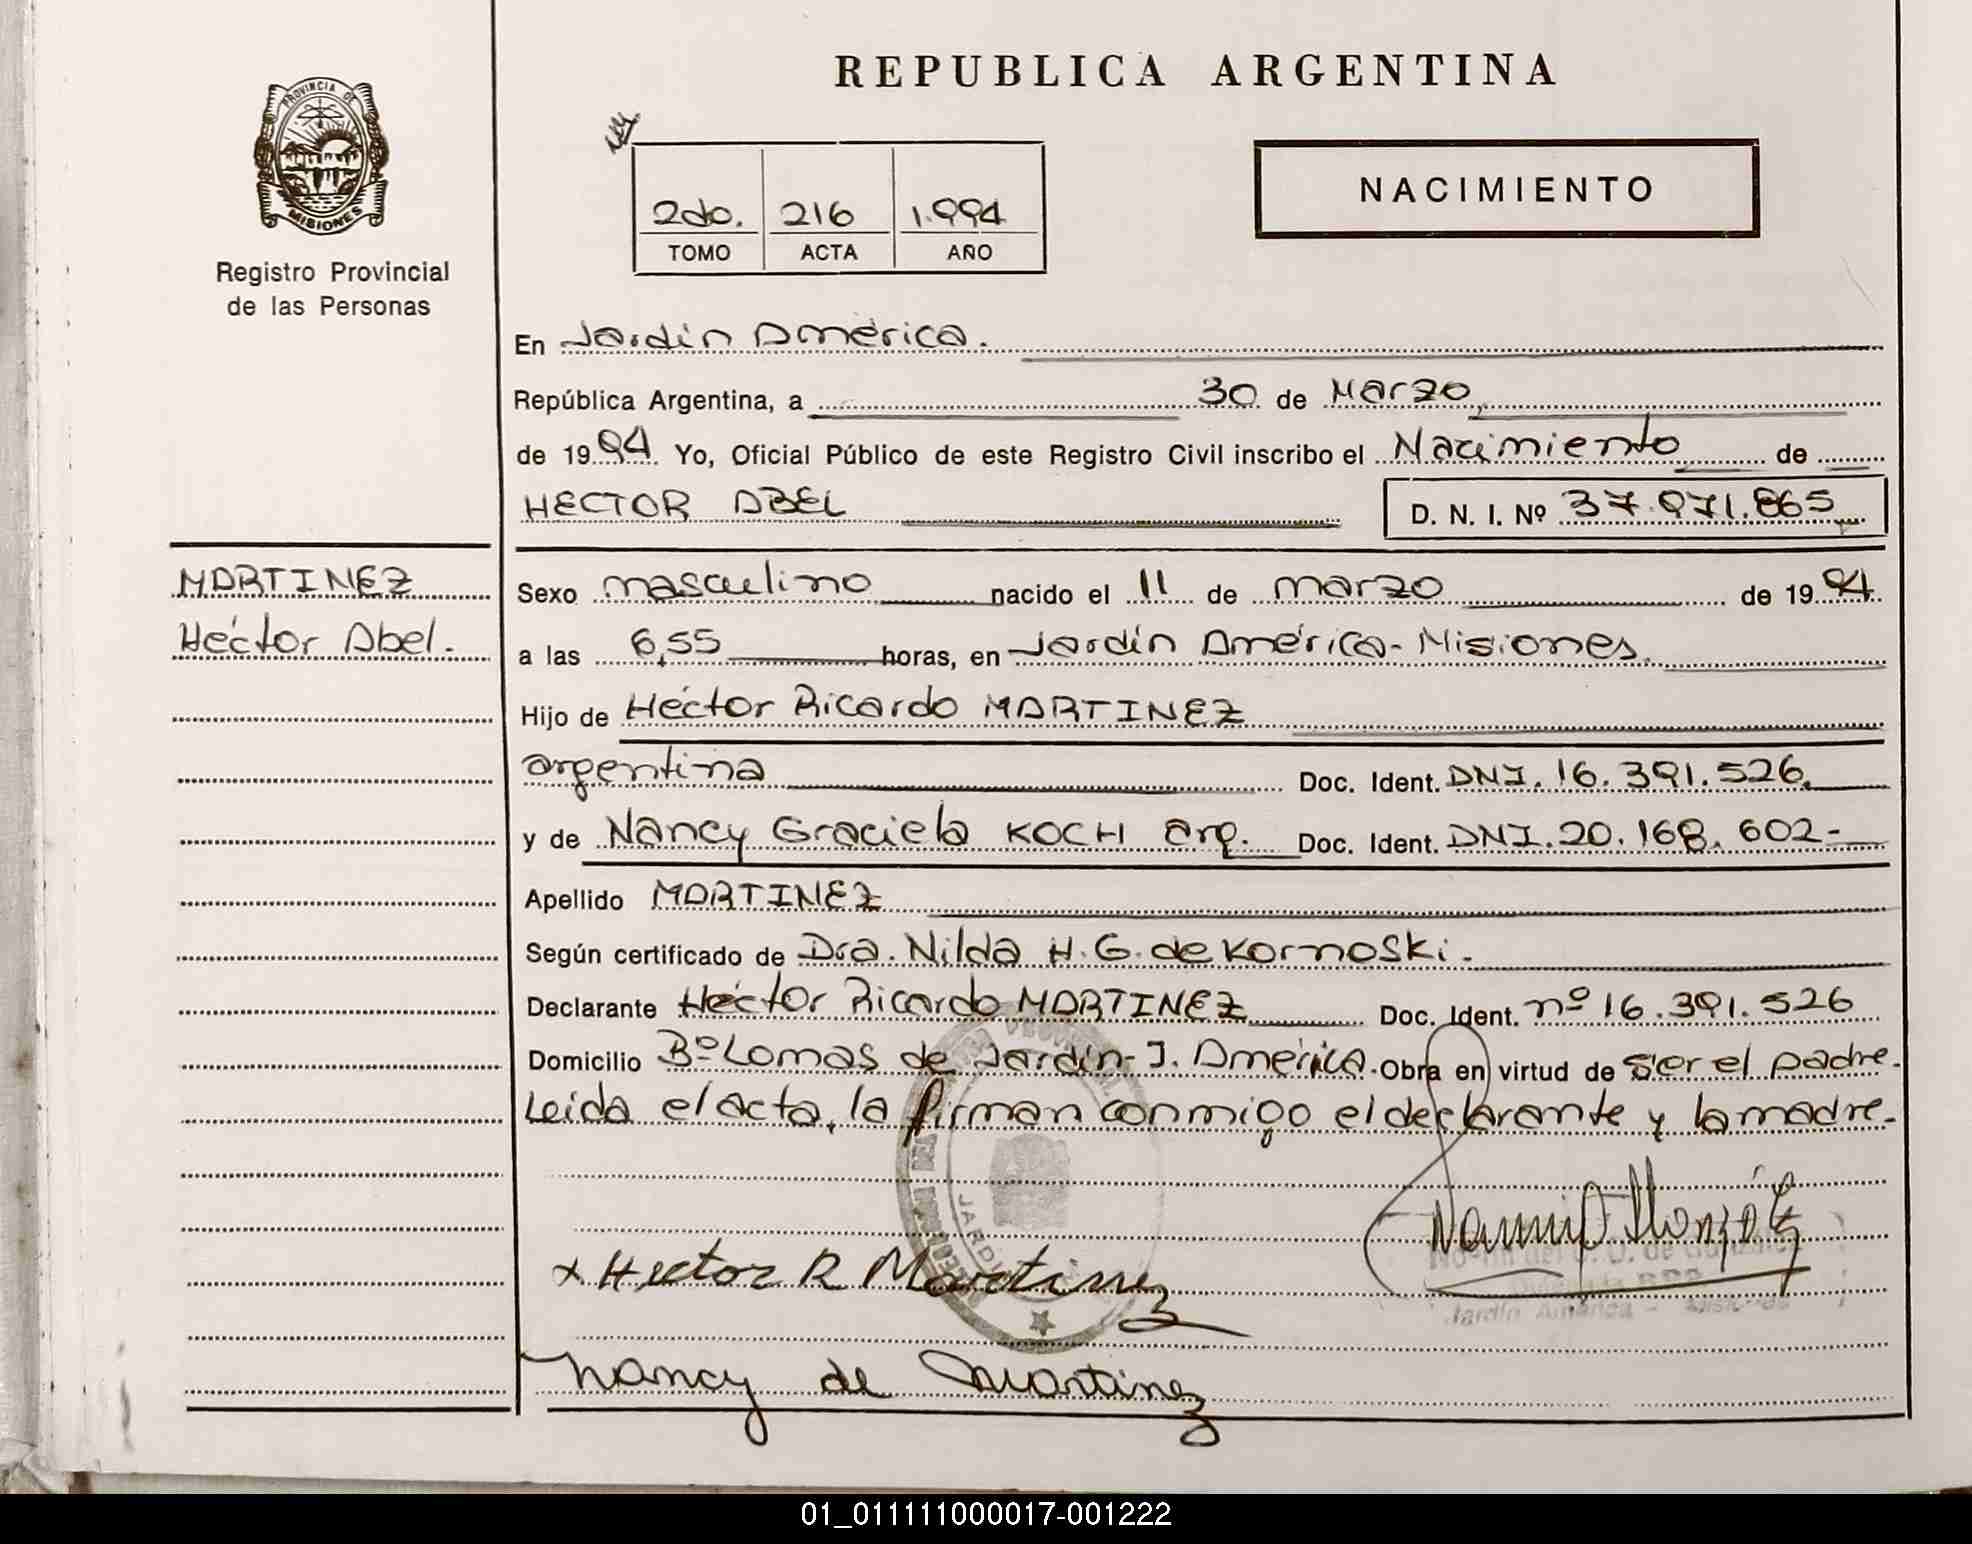 REPUBLICA ARGENTINA
PROVINCIA DE
MISIONES
Registro Provincial
de las Personas
2do. 216 1.994
TOMO ACTA AÑO
NACIMIENTO
En Jardín América.
República Argentina, a 30 de Marzo,
de 1994 Yo, Oficial Público de este Registro Civil inscribo el Nacimiento de
HECTOR ABEL D. N. I. Nº 37.971.865
MARTINEZ
Héctor Abel.
Sexo masculino nacido el 11 de marzo de 1994.
a las 6,55 horas, en Jardín América-Misiones.
Hijo de Héctor Ricardo MARTINEZ
argentina Doc. Ident. DNI. 16.391.526.
y de Nancy Graciela KOCH arg. Doc. Ident. DNI. 20.168.602-
Apellido MARTINEZ
Según certificado de Dra. Nilda H. G. de Kornoski.
Declarante Héctor Ricardo MARTINEZ Doc. Ident. nº 16.391.526
Domicilio Bº Lomas de Jardín-J. América. Obra en virtud de ser el padre.
Leída el acta, la firman conmigo el declarante y la madre.
x Hector R Martinez
Jardín América - Misiones
Nancy de Martinez
01_011111000017-001222